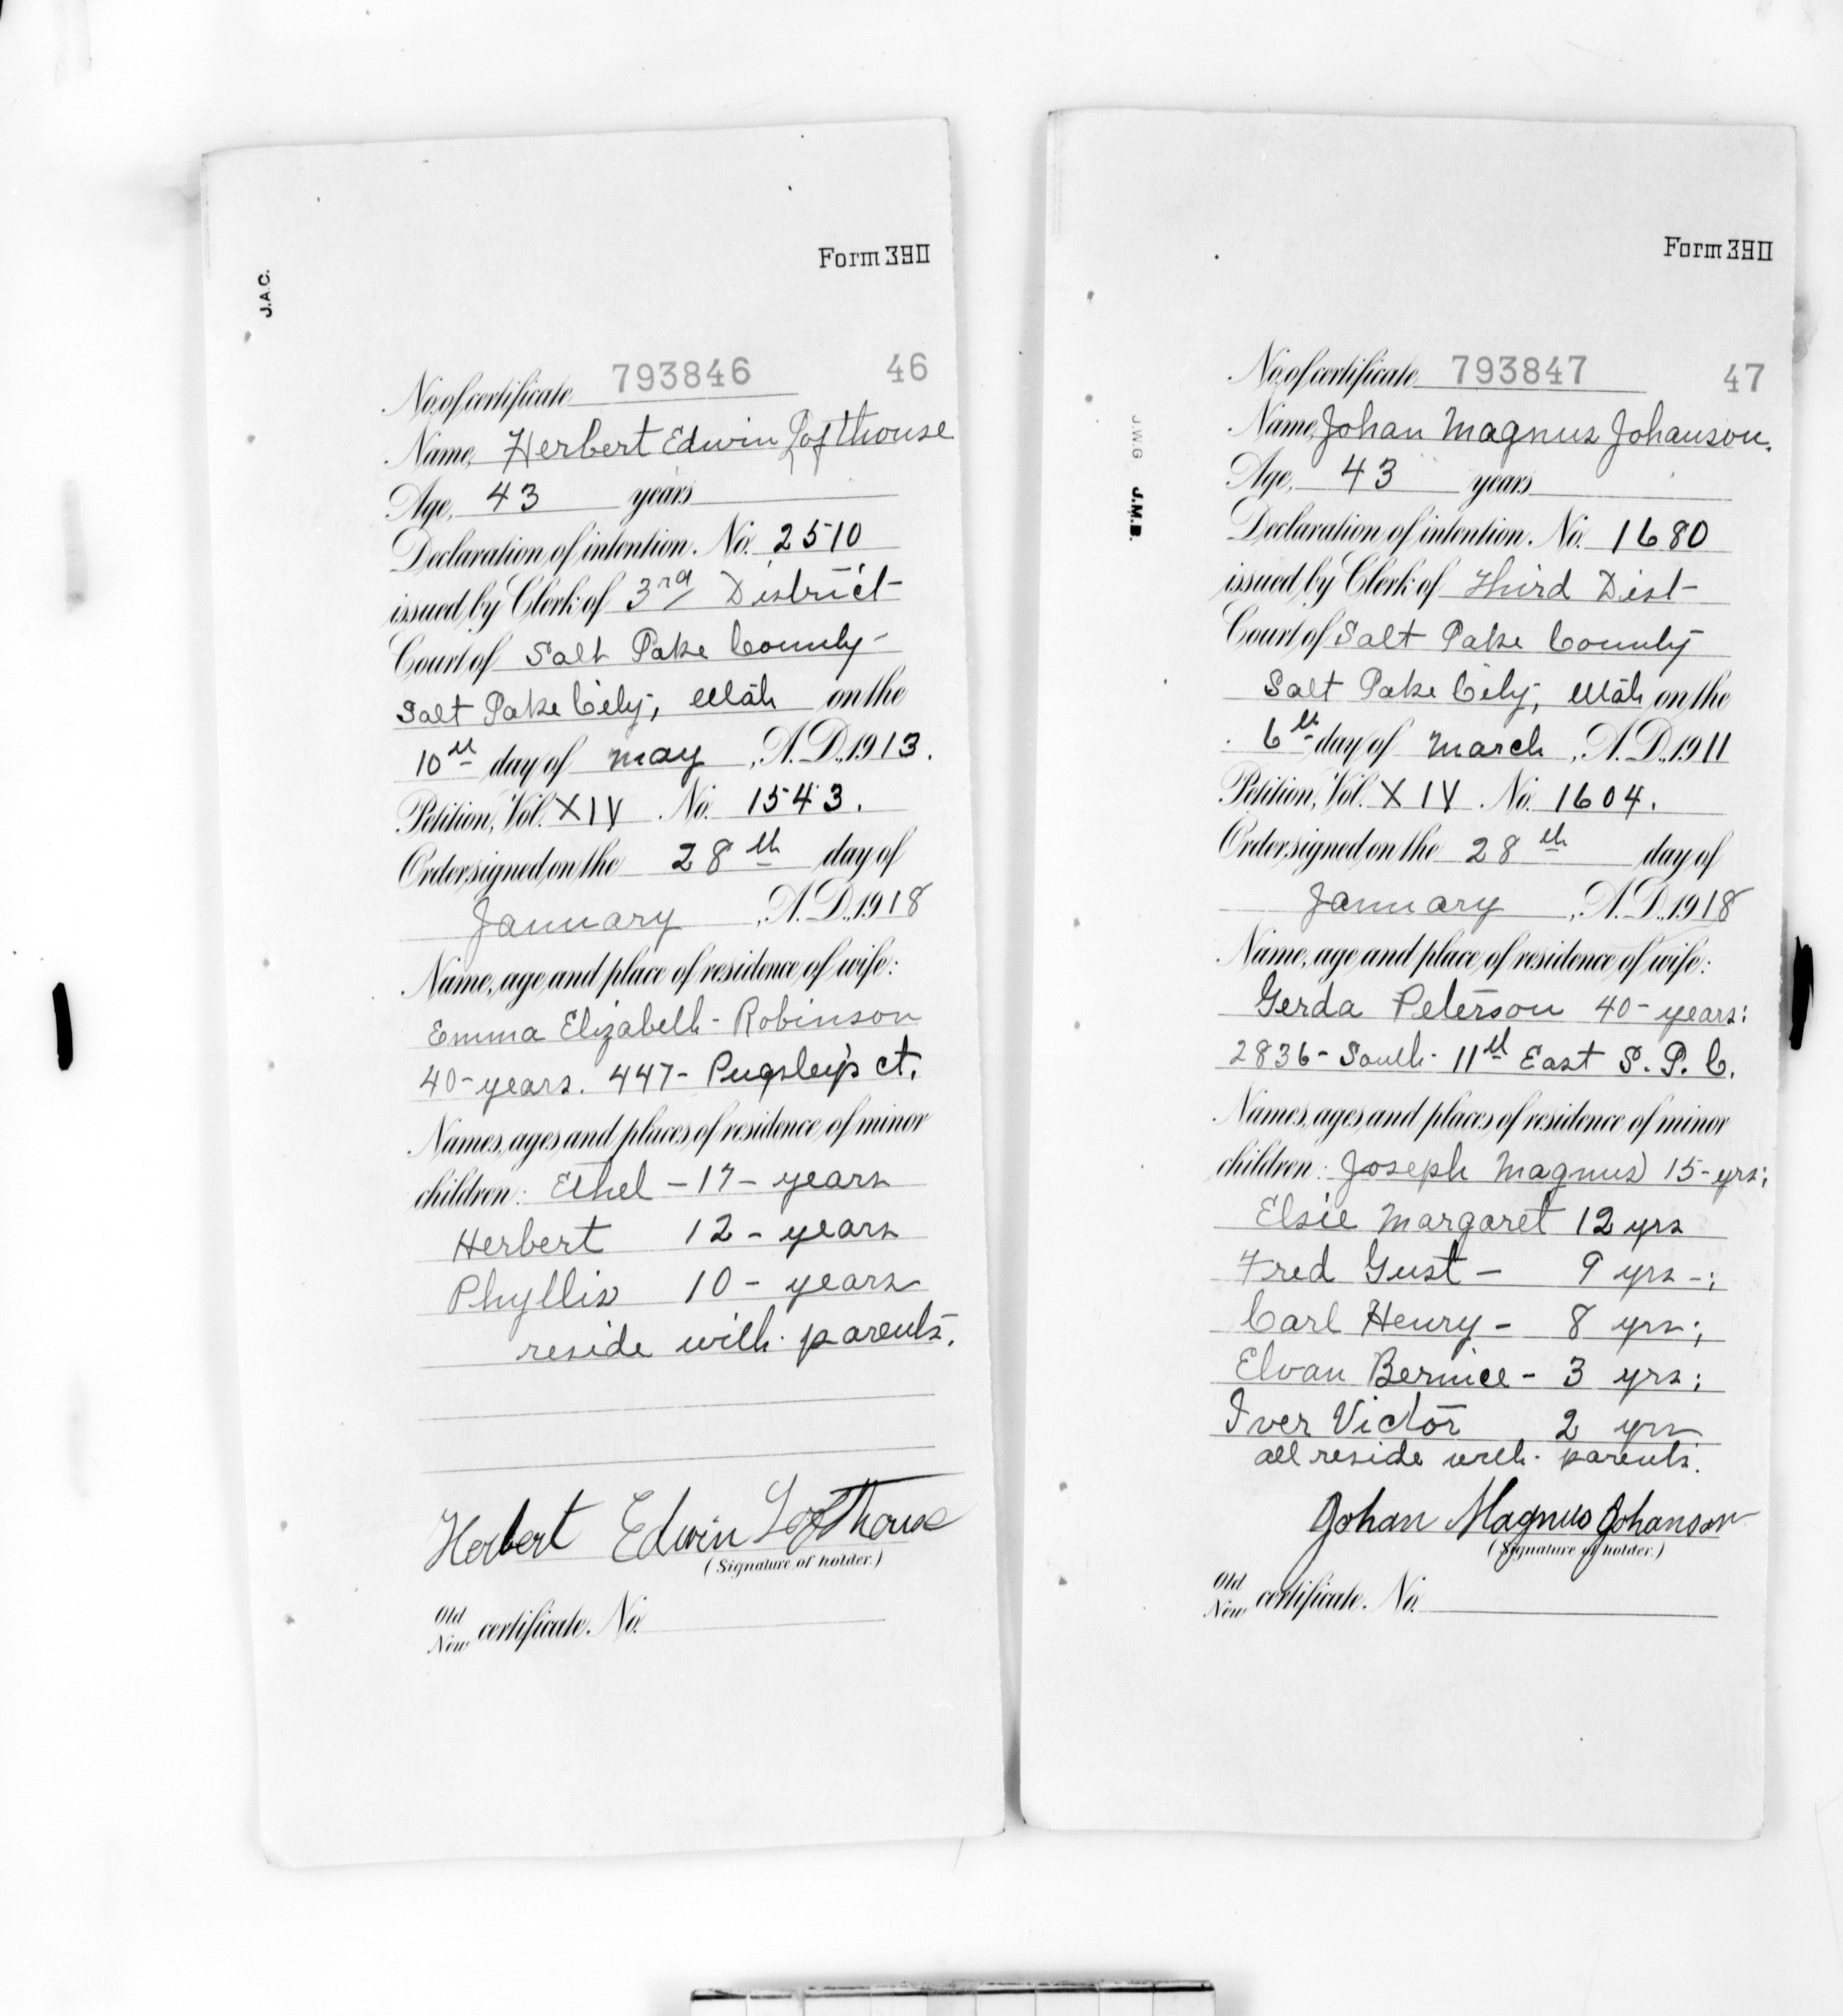 J.A.C.
Form 390
No. of certificate 793846 46
Name, Herbert Edwin Lofthouse
Age, 43 years
Declaration of intention. No. 2510
issued by Clerk of 3rd District
Court of Salt Lake County
Salt Lake City, Utah on the
10th day of May, A.D., 1913.
Petition, Vol. XIV No. 1543.
Order signed on the 28th day of
January, A.D., 1918
Name, age and place of residence of wife:
Emma Elizabeth Robinson
40-years. 447- Pugsley's ct.
Names, ages and places of residence of minor
children: Ethel - 17 - years
Herbert 12 - years
Phyllis 10 - years
reside with parents.
Herbert Edwin Lofthouse
(Signature of holder.)
Old
New certificate. No.
Form 390
J.W.G J.M.B.
No. of certificate 793847 47
Name, Johan Magnus Johanson.
Age, 43 years
Declaration of intention. No. 1680
issued by Clerk of Third Dist
Court of Salt Lake County
Salt Lake City, Utah on the
6th day of March, A.D., 1911
Petition, Vol. XIV No. 1604.
Order signed on the 28th day of
January, A.D., 1918
Name, age and place of residence of wife:
Gerda Peterson 40-years;
2836- South- 11th East S. L. C.
Names, ages and places of residence of minor
children: Joseph Magnus 15-yrs;
Elsie Margaret 12 yrs
Fred Gust - 9 yrs -;
Carl Henry - 8 yrs;
Elvan Bernice - 3 yrs;
Iver Victor 2 yrs
all reside with parents.
Johan Magnus Johanson
(Signature of holder.)
Old
New certificate. No.